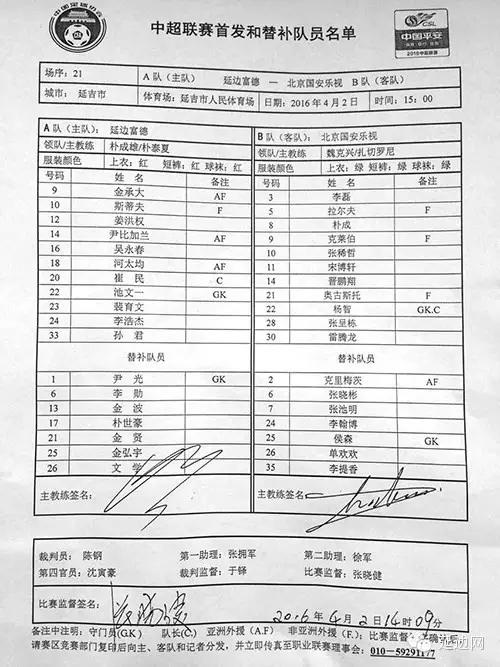 中国足球协会
CSL
中国平安
2016中超联赛
中超联赛首发和替补队员名单
场序：21 A队（主队） 延边富德 — 北京国安乐视 B队（客队）
城市：延吉市 体育场：延吉市人民体育场 日期：2016年4月2日 时间：15：00
A队（主队）：延边富德
领队/主教练 朴成雄/朴泰夏
服装颜色 上衣：红 短裤：红 球袜：红
号码 姓 名 备注
9 金承大 AF
10 斯蒂夫 F
12 姜洪权
14 尹比加兰 AF
16 吴永春
18 河太均 AF
20 崔 民 C
22 池文一 GK
23 裴育文
24 李浩杰
33 孙 君
替补队员
1 尹 光 GK
6 李 勋
13 金 波
17 朴世豪
21 金 贤
25 金弘宇
26 文 学
主教练签名：
B队（客队）：北京国安乐视
领队/主教练 魏克兴/扎切罗尼
服装颜色 上衣：绿 短裤：绿 球袜：绿
号码 姓 名 备注
3 李磊
5 拉尔夫 F
8 朴成
9 克莱伯 F
10 张稀哲
11 宋博轩
14 晋鹏翔
21 奥古斯托 F
22 杨智 GK.C
28 张呈栋
30 雷腾龙
替补队员
2 克里梅茨 AF
6 张晓彬
7 张池明
24 李翰博
25 侯森 GK
26 单欢欢
35 李提香
主教练签名：
裁判员：陈钢 第一助理：张拥军 第二助理：徐军
第四官员：沈寅豪 裁判监督：于铎 比赛监督：张晓健
比赛监督签名： 2016年4月2日14时09分
备注中注明：守门员(G.K) 队长(C.) 亚洲外援(A.F) 非亚洲外援(F.)；比赛监督签名确认后，
请赛区竞赛部门复印后向主、客队和记者分发，并立即传真至职业联赛理事会:010-59291177
延边网